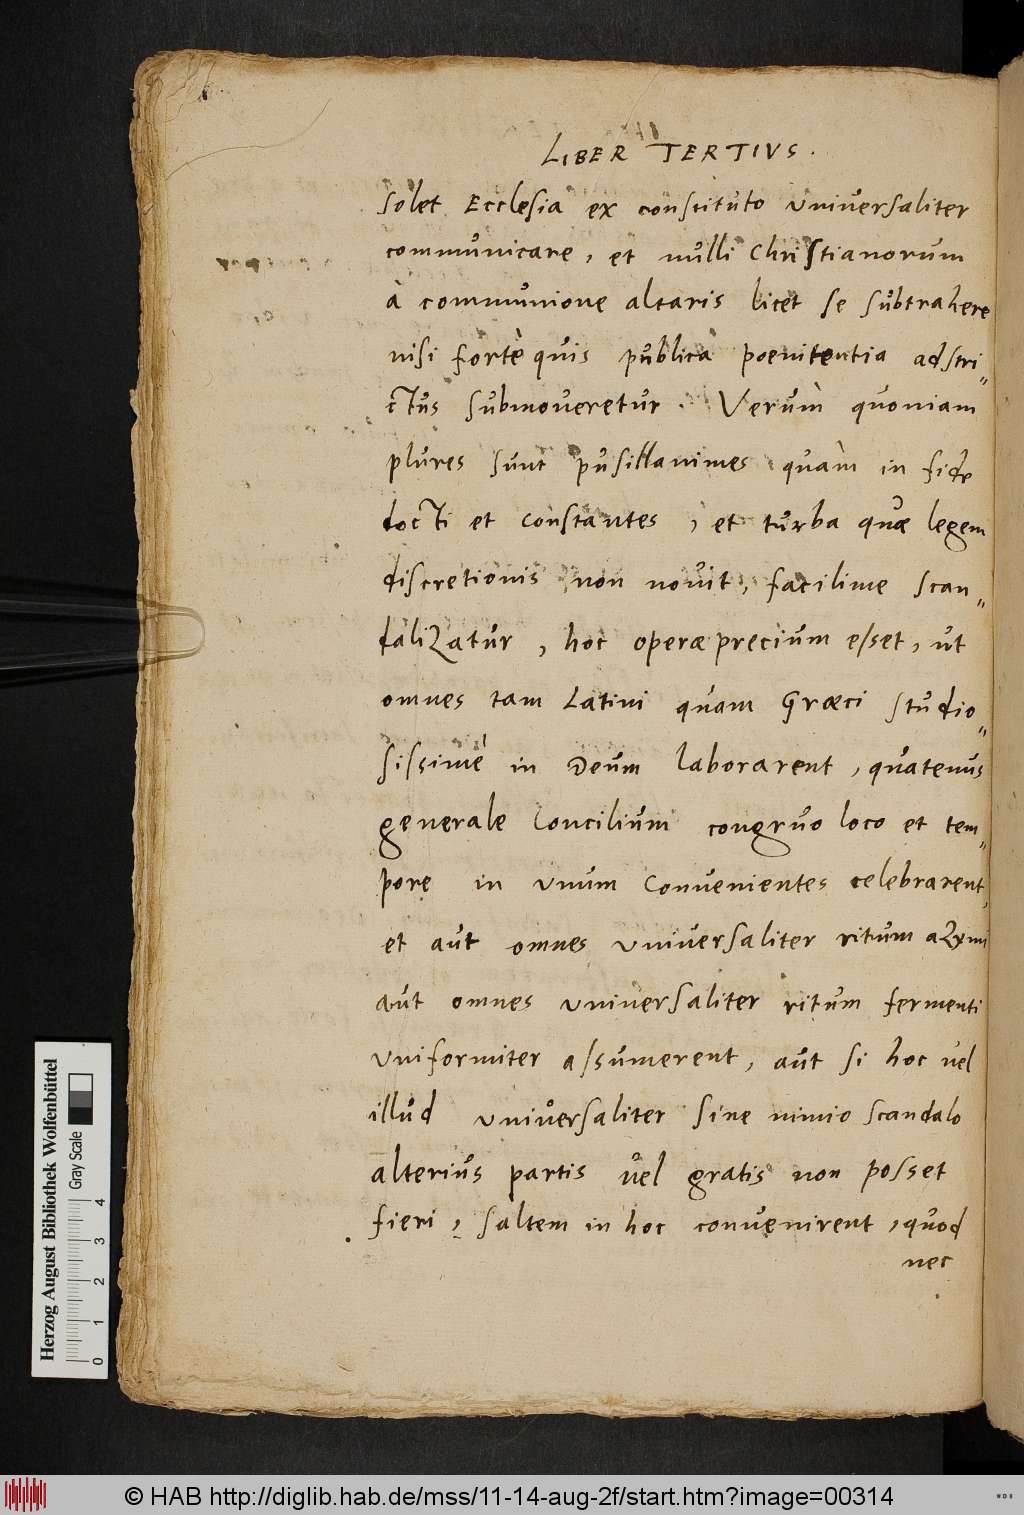 LIBER TERTIVS.
solet Ecclesia ex constituto vniuersaliter
communicare, et nulli Christianorum
à communione altaris licet se subtrahere
nisi fortè quis publica poenitentia adstri„
ctus submoueretur. Verùm quoniam
plures sunt pusillanimes quàm in fide
docti et constantes, et turba quæ legem
discretionis non nouit, facilime scan„
daliZatur, hoc operæprecium esset, ut
omnes tam Latini quam Græci studio„
sissimè in Deum laborarent, quatenus
generale Concilium congruo loco et tem„
pore in vnum Convenientes celebrarent,
et aut omnes vniuersaliter ritum aZymi
aut omnes vniuersaliter ritum fermenti
vniformiter assumerent, aut si hoc vel
illud vniuersaliter sine nimio scandalo
alterius partis vel gratis non posset
fieri, saltem in hoc convenirent, quod
nec
Herzog August Bibliothek Wolfenbüttel
Gray Scale
0 1 2 3 4
© HAB http://diglib.hab.de/mss/11-14-aug-2f/start.htm?image=00314